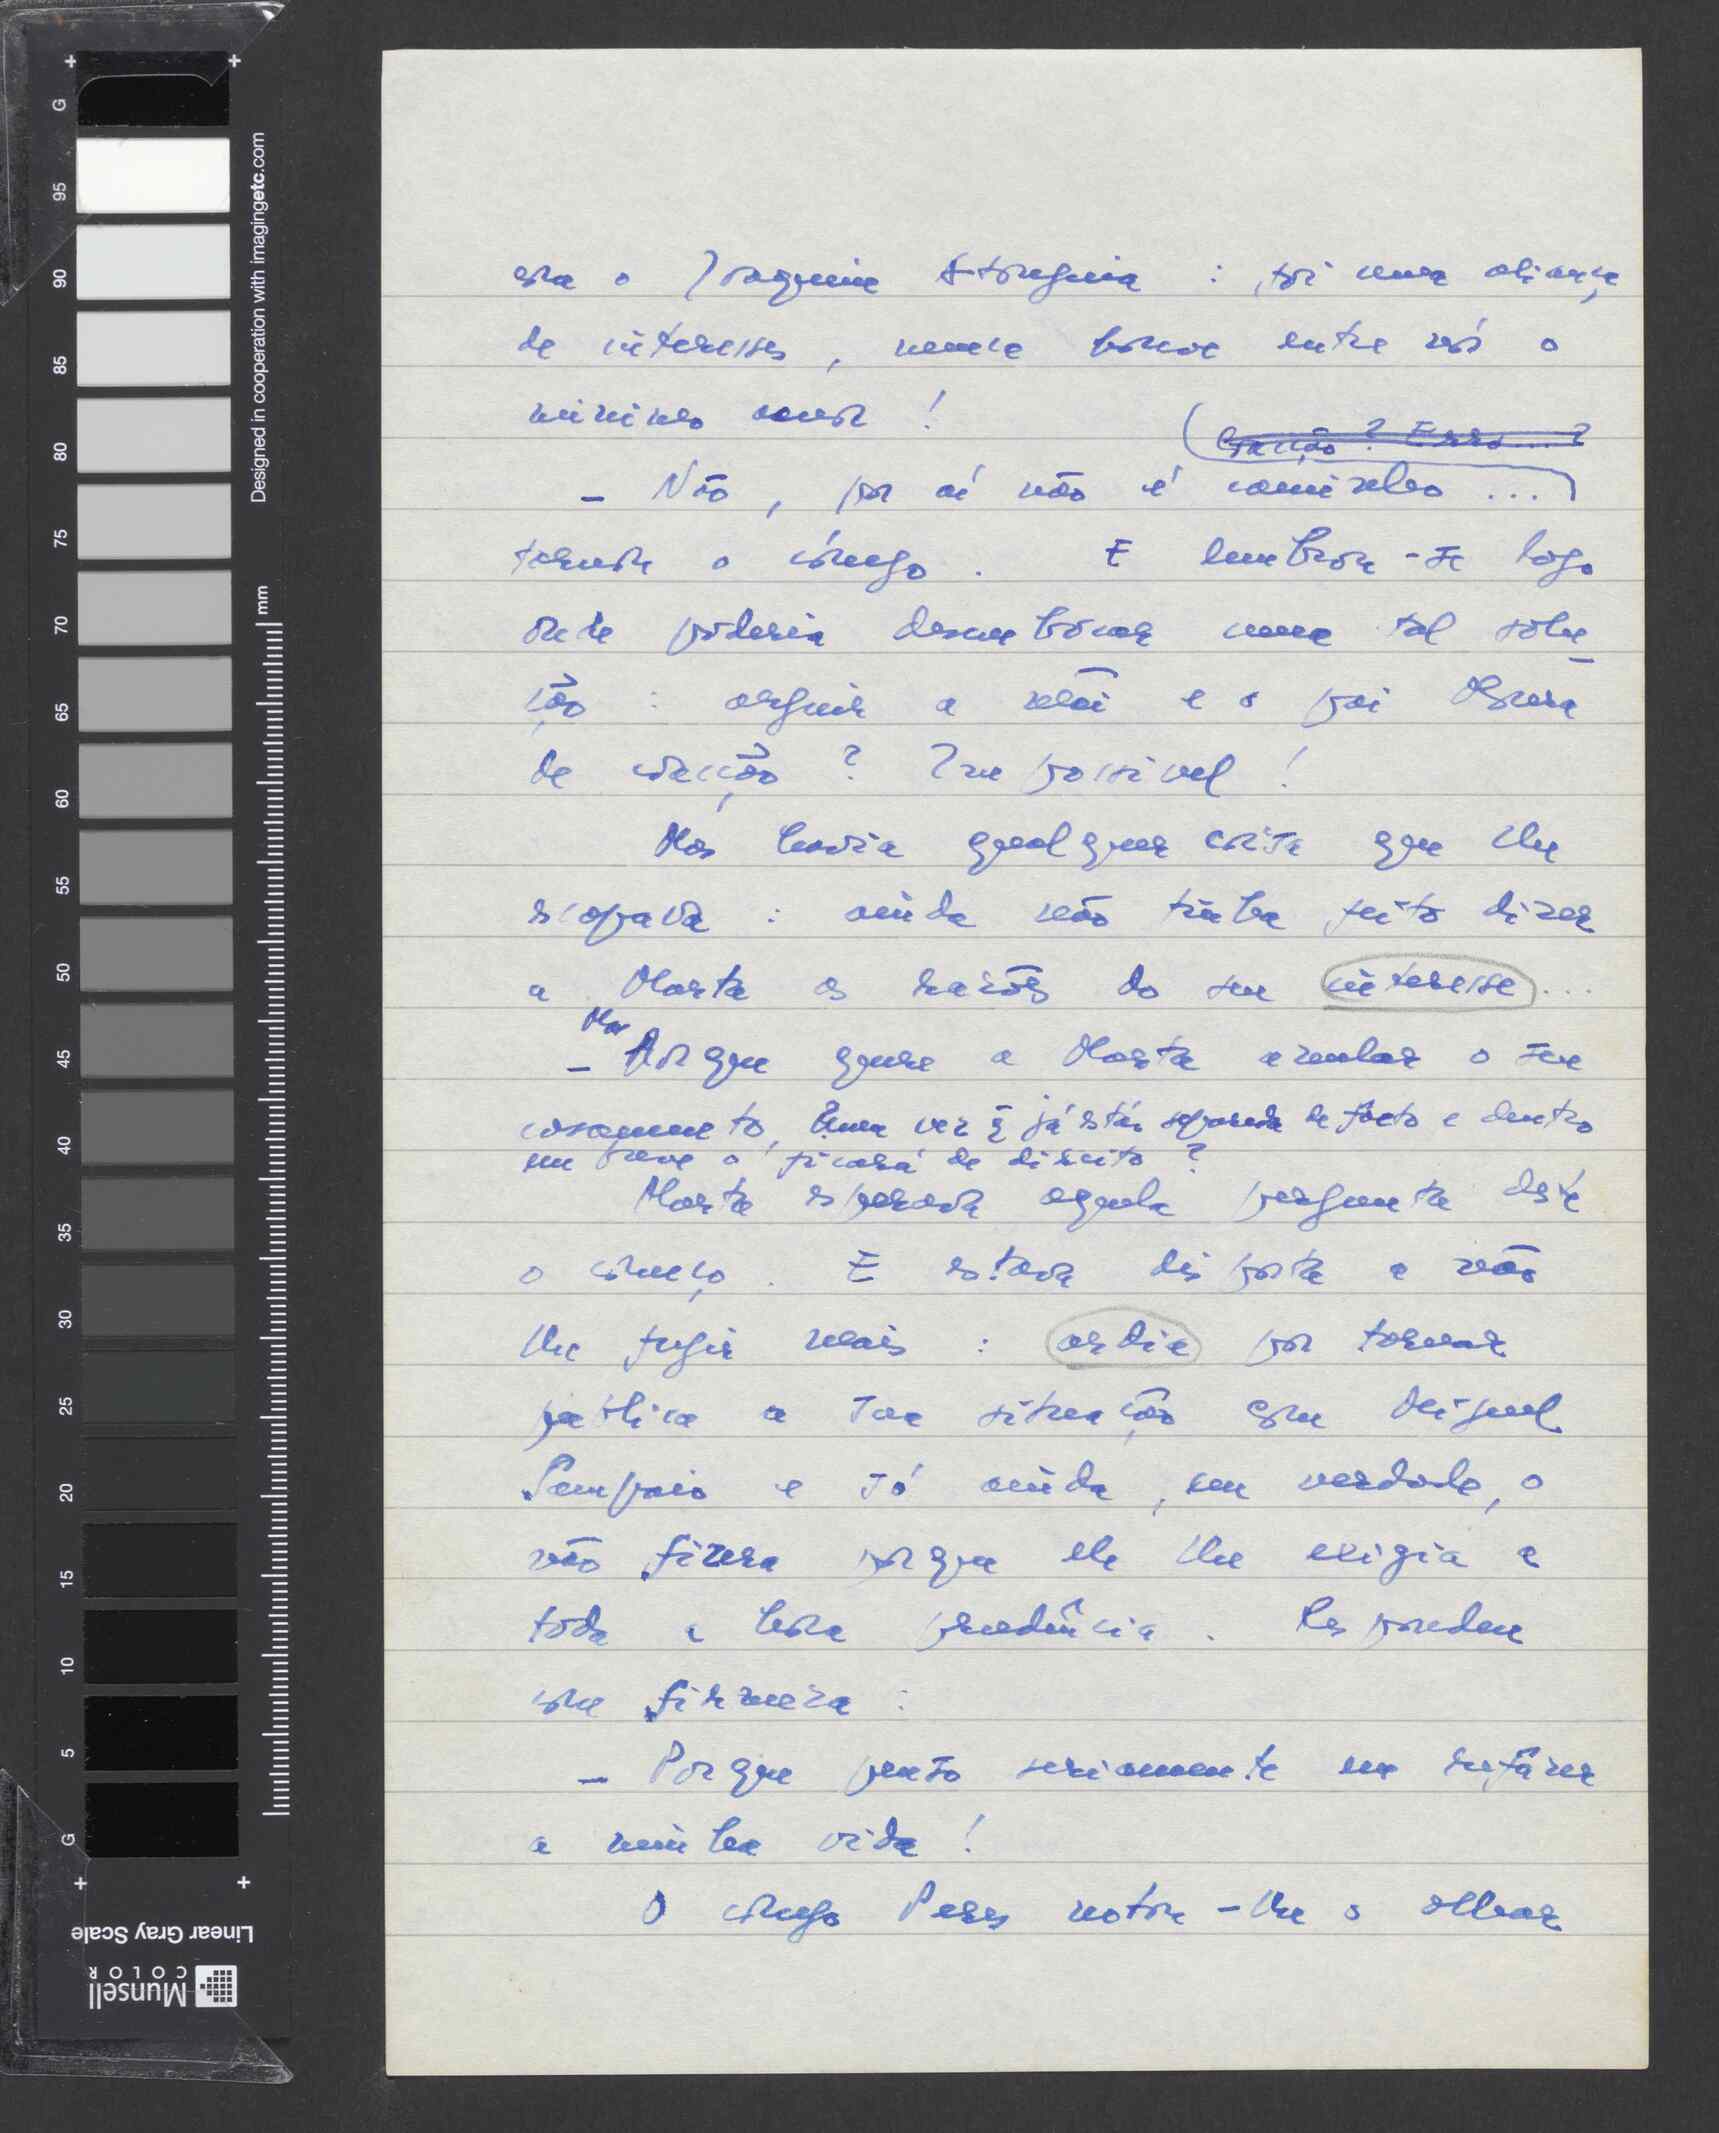 G
95
90
85
80
75
70
65
60
55
50
45
40
35
30
25
20
15
10
5
G
Designed in cooperation with imagingetc.com
mm
Linear Gray Scale
Munsell
COLOR
era o Joaquim : foi uma aliança
de interesses, nunca houve entre nós o
mínimo amor!
Coacção? Erro...?
– Não, por aí não é caminho ...
tornou o cónego. E lembrou-se logo
onde poderia desembocar uma tal solu-
ção : arguir a mãe e o pai
de coacção? Impossível!
Mas havia qualquer coisa que lhe
escapava : ainda não tinha feito dizer
a Marta as razões do seu interesse...
Mas
– Porque quere a Marta anular o seu
casamento, uma vez q̃ já está separada de facto e dentro
em breve o ficará de direito?
Marta esperava aquela pergunta desde
o começo. E estava disposta a não
lhe fugir mais : ardia por tornar
pública a sua situação com Miguel
Sampaio e só ainda, em verdade, o
não fizera porque ele lhe exigia a
toda a hora prudência. Respondeu
com firmeza :
– Porque penso seriamente em refazer
a minha vida!
O cónego Peres notou-lhe o olhar